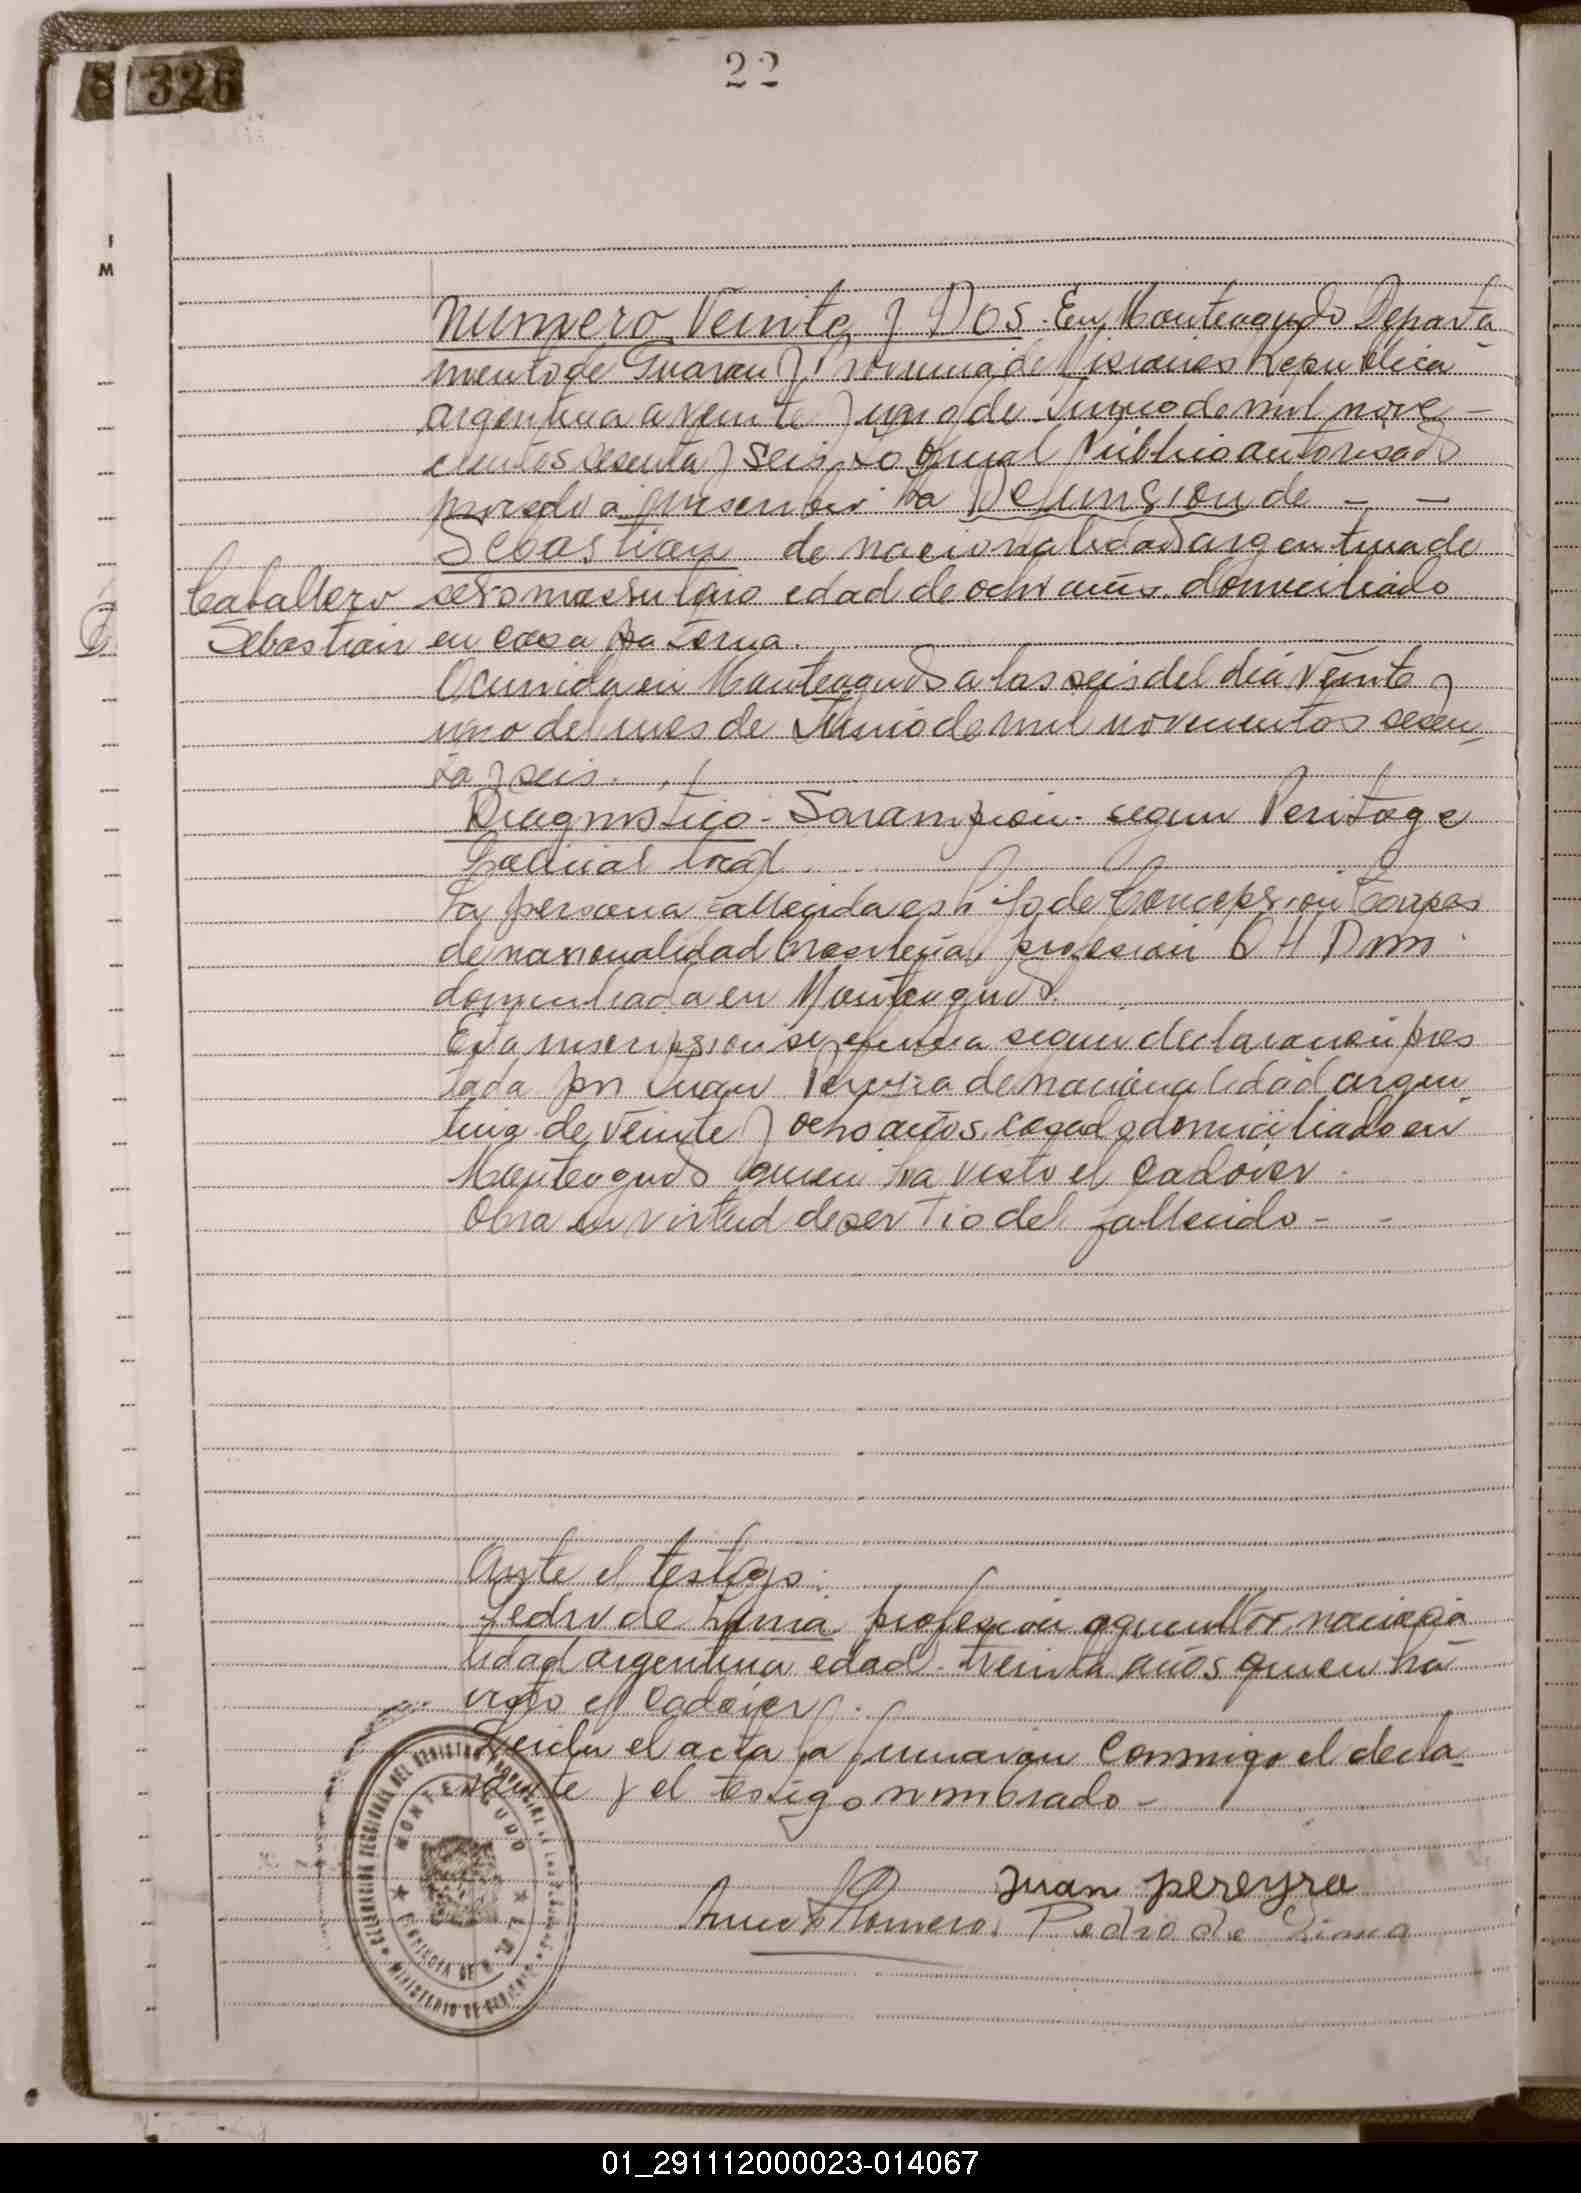 22
326
Numero Veinte y Dos. En Monteagudo Departa-
mento de Guarani Provincia de Misiones Republica
argentina a veinte y uno de Junio de mil nove-
cientos sesenta y seis, yo oficial Público autorisado
procedo a inscribir la Defunsion de - -
Sebastian de nacionalidad argentina de
Caballero
sexo masculino edad de ocho años. domiciliado
Sebastian
en casa paterna.
Ocurrida en Monteagudo a las seis del dia veinte y
uno del mes de Junio de mil novecientos sesen-
ta y seis.
Diagnostico - Sarampion - segun Peritage
Policial local
La persona fallecida es hijo de Concepsion
de nacionalidad brasileña, profesion Q H Dom.
domiciliada en Monteagudo.
Esta inscripsion se efectua segun declaracion pres
tada por Juan Pereyra de nacionalidad argen
tina de veinte y ocho años, casado domiciliado en
Monteagudo quien ha visto el cadaver.
Obra en virtud de ser Tio del fallecido - -
Ante el testigo:
Pedro de Lima profesion agricultor naciona
lidad argentina edad treinta años quien ha
visto el cadaver.
Leida el acta la firmaron conmigo el decla-
rante y el testigo nombrado -
MONTEAGUDO
Juan Pereyra
Romero. Pedro de Lima
01_291112000023-014067